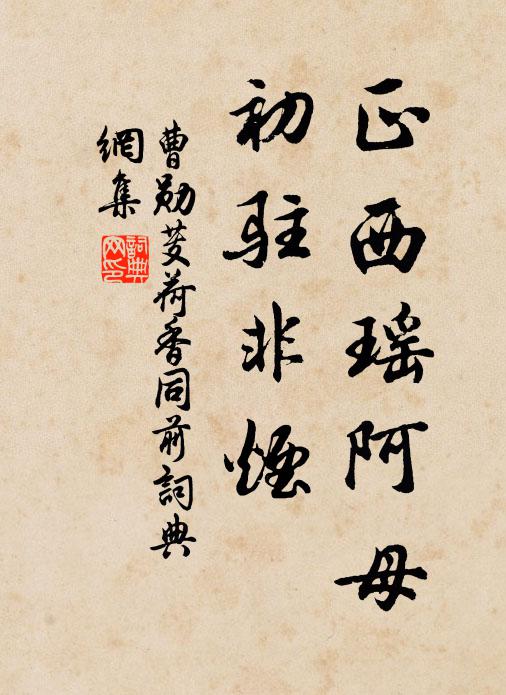 正西瑶阿母
初驻非煙
曹勋芰荷香同前詞典
網集
詞典网印